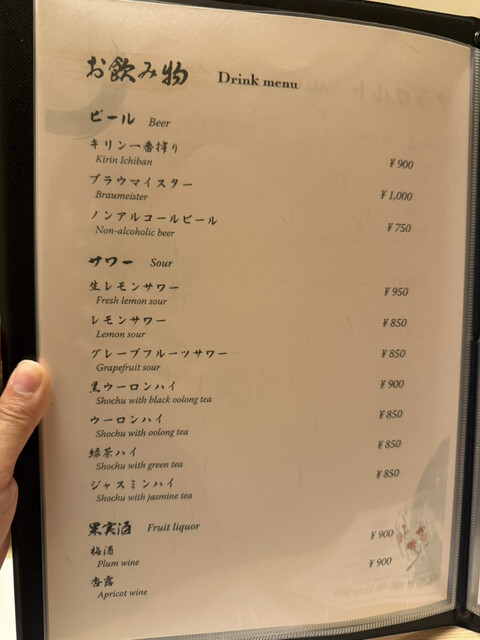 お飲み物 Drink menu
ビール Beer
キリン一番搾り ¥900
Kirin Ichiban
ブラウマイスター ¥1,000
Braumeister
ノンアルコールビール ¥750
Non-alcoholic beer
サワー Sour
生レモンサワー ¥950
Fresh lemon sour
レモンサワー ¥850
Lemon sour
グレープフルーツサワー ¥850
Grapefruit sour
黒ウーロンハイ ¥900
Shochu with black oolong tea
ウーロンハイ ¥850
Shochu with oolong tea
緑茶ハイ ¥850
Shochu with green tea
ジャスミンハイ ¥850
Shochu with jasmine tea
果実酒 Fruit liquor
梅酒 ¥900
Plum wine
杏露 ¥900
Apricot wine